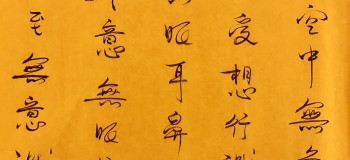 空中無色
受想行識
眼耳鼻
意無眼
至無意識